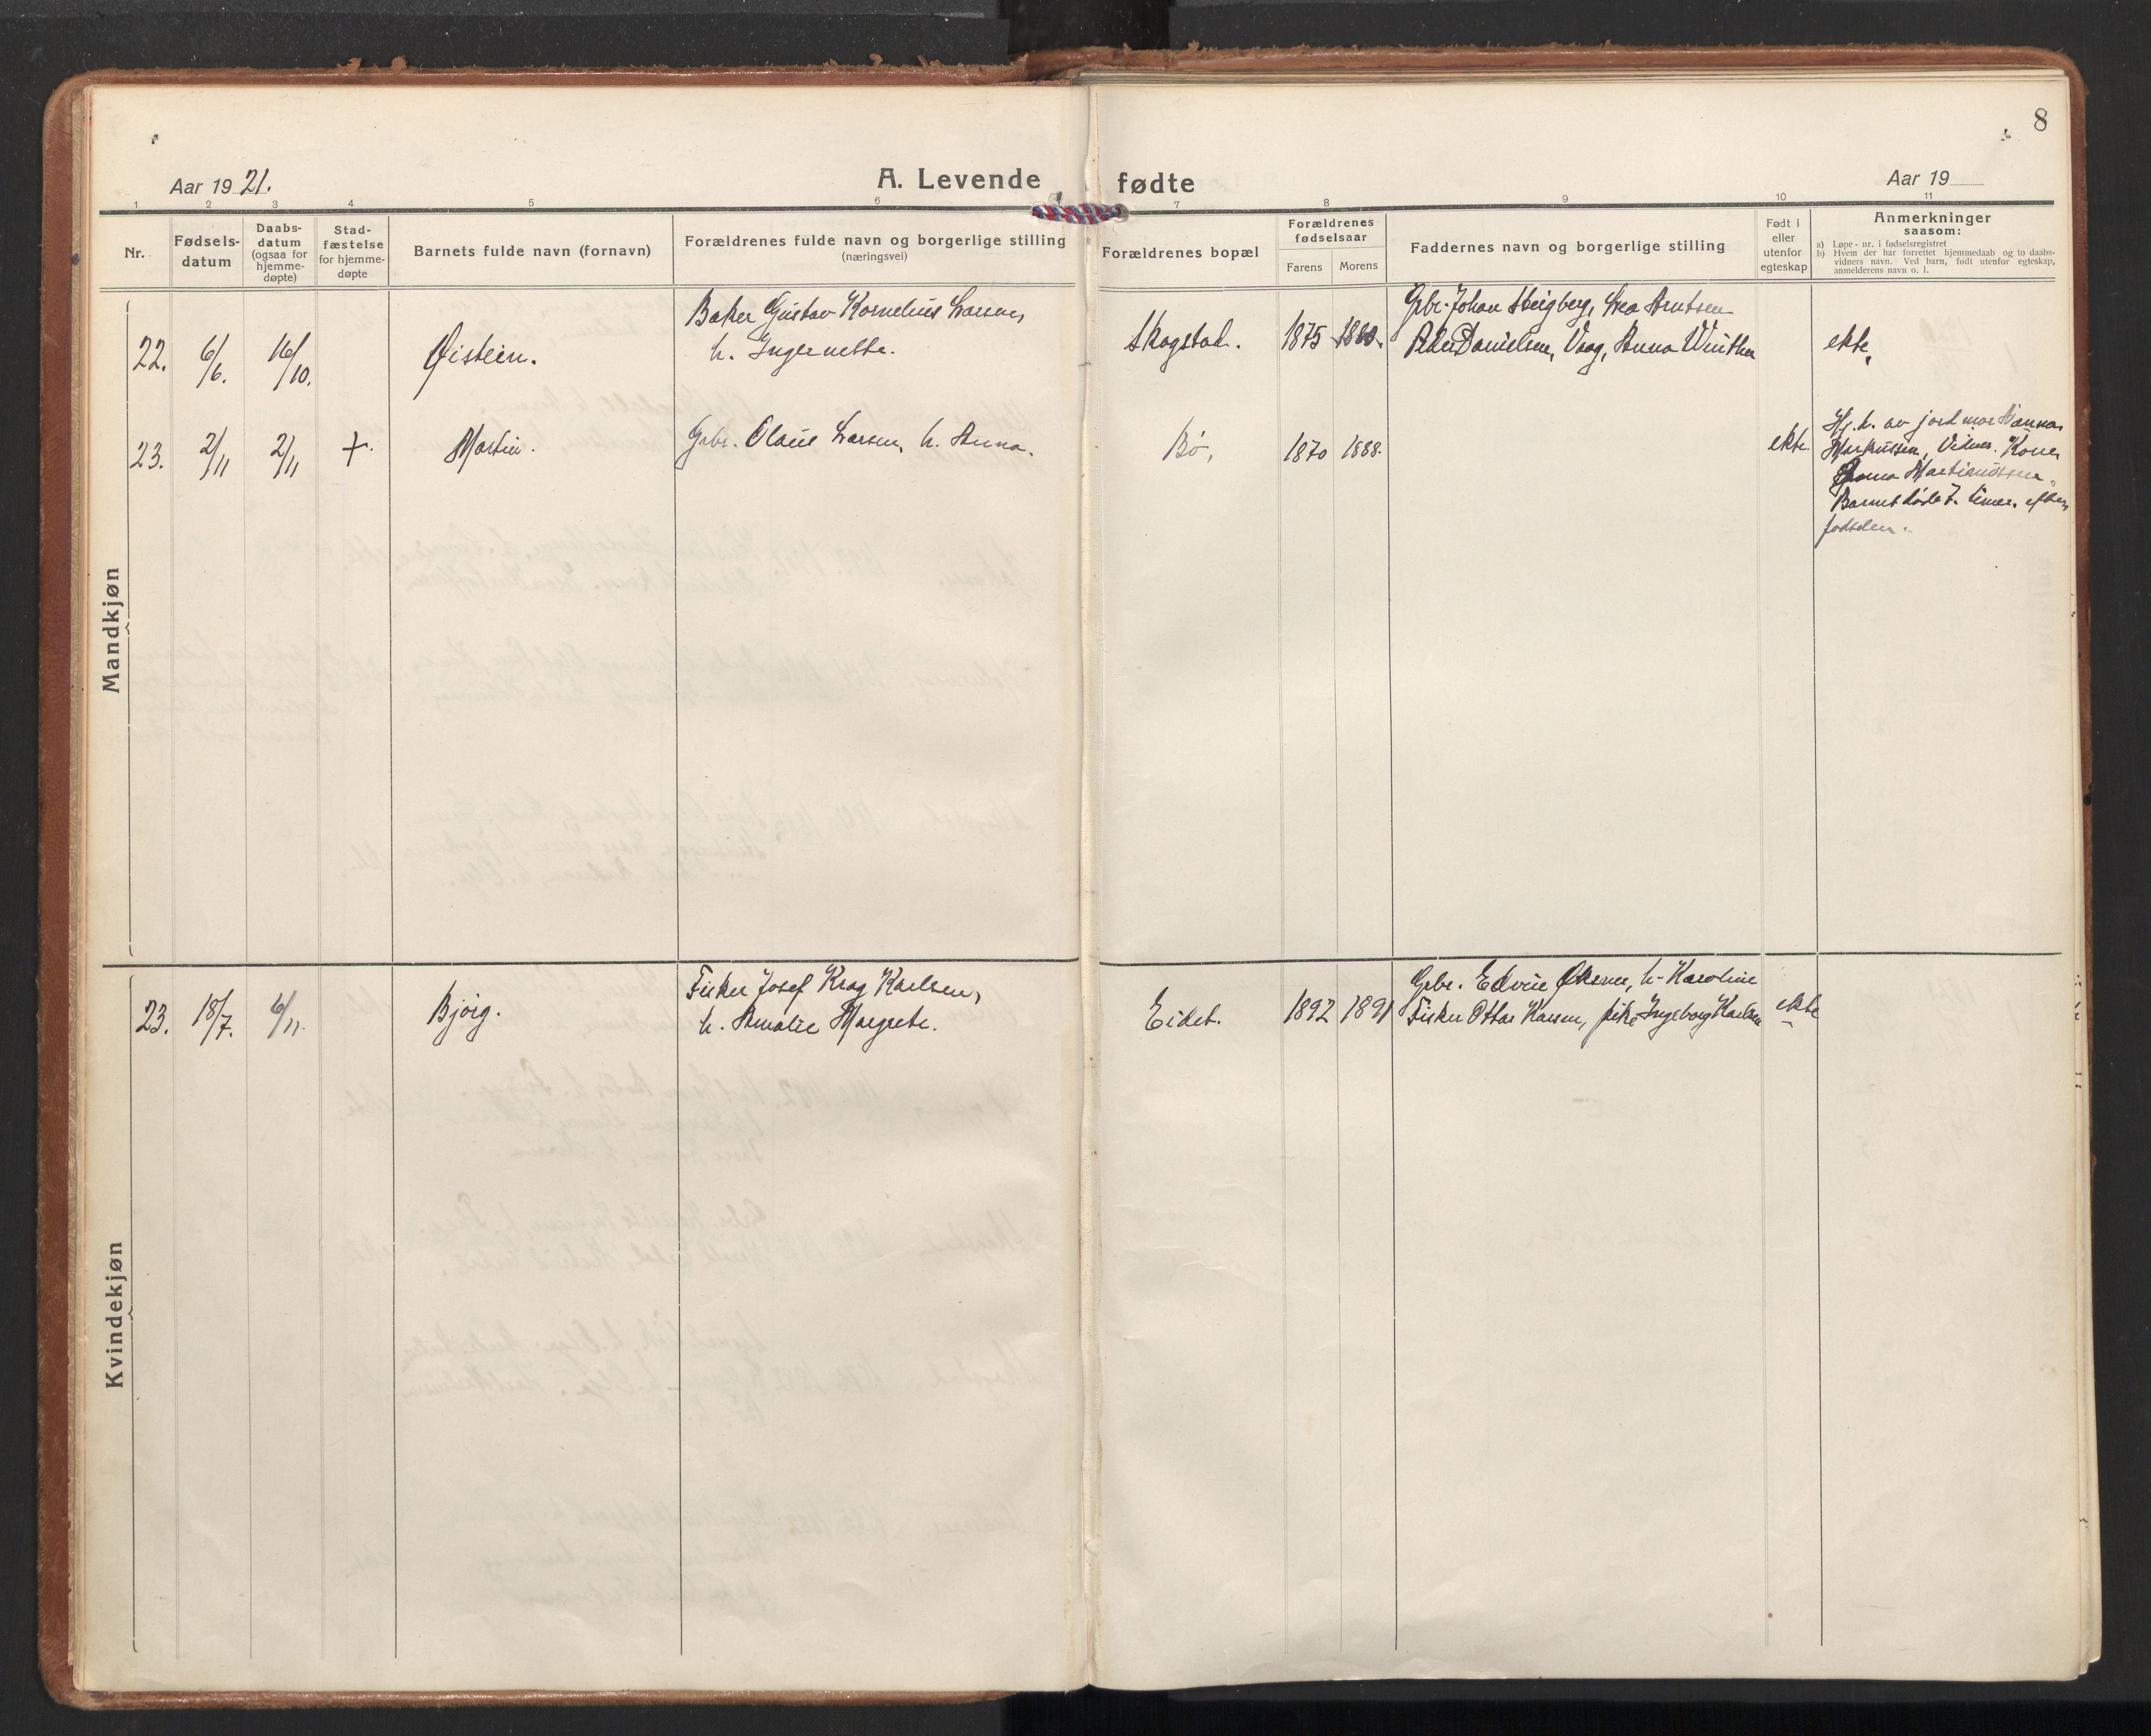 8
Aar 1921.
A. Levende fødte
Aar 19
1 2 3 4 5 6 7 8 9 10 11
Nr.
Fødsels-
datum
Daabs-
datum
(ogsaa for
hjemme-
døpte)
Stad-
fæstelse
for hjemme-
døpte
Barnets fulde navn (fornavn)
Forældrenes fulde navn og borgerlige stilling
(næringsvei)
Forældrenes bopæl
Forældrenes
fødselsaar
Farens Morens
Faddernes navn og borgerlige stilling
Født i
eller
utenfor
egteskap
Anmerkninger
saasom:
a) Løpe-nr. i fødselsregistret
b) Hvem der har forrettet hjemmedaab og to daabs-
vidners navn. Ved barn, født utenfor egteskap,
anmelderens navn o. l.
Mandkjøn
22. 6/6. 16/10. Øistein.
Baker Gustav Kornelius Larsen,
h. Ingernette.
Skogstad. 1875 1880.
Grbr. Johan Steigberg, Lea Arntsen
Peder Danielsen, Vaag, Anna Winther
ekte
23. 2/11 2/11 +. Martin.
Grbr. Olaus Larsen, h. Anna.
Bø, 1870 1888.
ekte
Hj.d. av jordmor Hanna
Markussen, Vidner: Kone
Martinussen.
Barnet døde 7. timer. efter
fødselen.
Kvindekjøn
23. 18/7. 6/11. Bjørg.
Fisker Josef Krag Karlsen,
h. Amalie Margrete.
Eidet. 1892 1891
Grbr. Edvin Øksnes, h. Karoline
Fisker Ottar Karsen, pike Ingeborg Karlsen
ekte